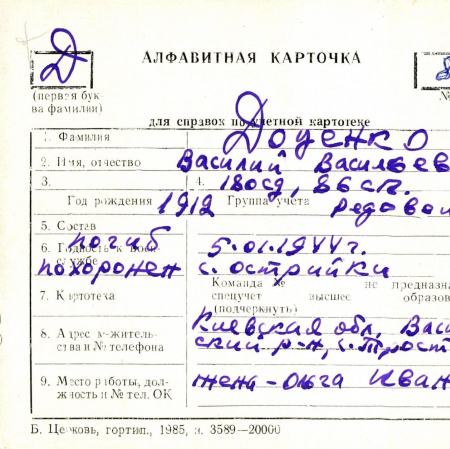 Д
АЛФАВИТНАЯ КАРТОЧКА
8
(первая бук-
ва фамилии)
№
для справок по учетной картотеке
1. Фамилия Доценко
2. Имя, отчество Василий Васильев
3. 4. 180сд, 86сп.
Год рождения 1912 Группа учета Рядовой
5. Состав
погиб 5.01.1944г.
6. Годность к воен-
службе
похоронен с. Острийки
Команда № не предназна
7. Картотека спецучет высшее образов
(подчеркнуть)
8. Адрес м-жительства и № телефона
Киевская обл, Васи
ский р-н, с. Трост
9. Место работы, дол-
жность и № тел. ОК
жена - Ольга Иван
Б. Церковь, гортип., 1985, з. 3589—20000